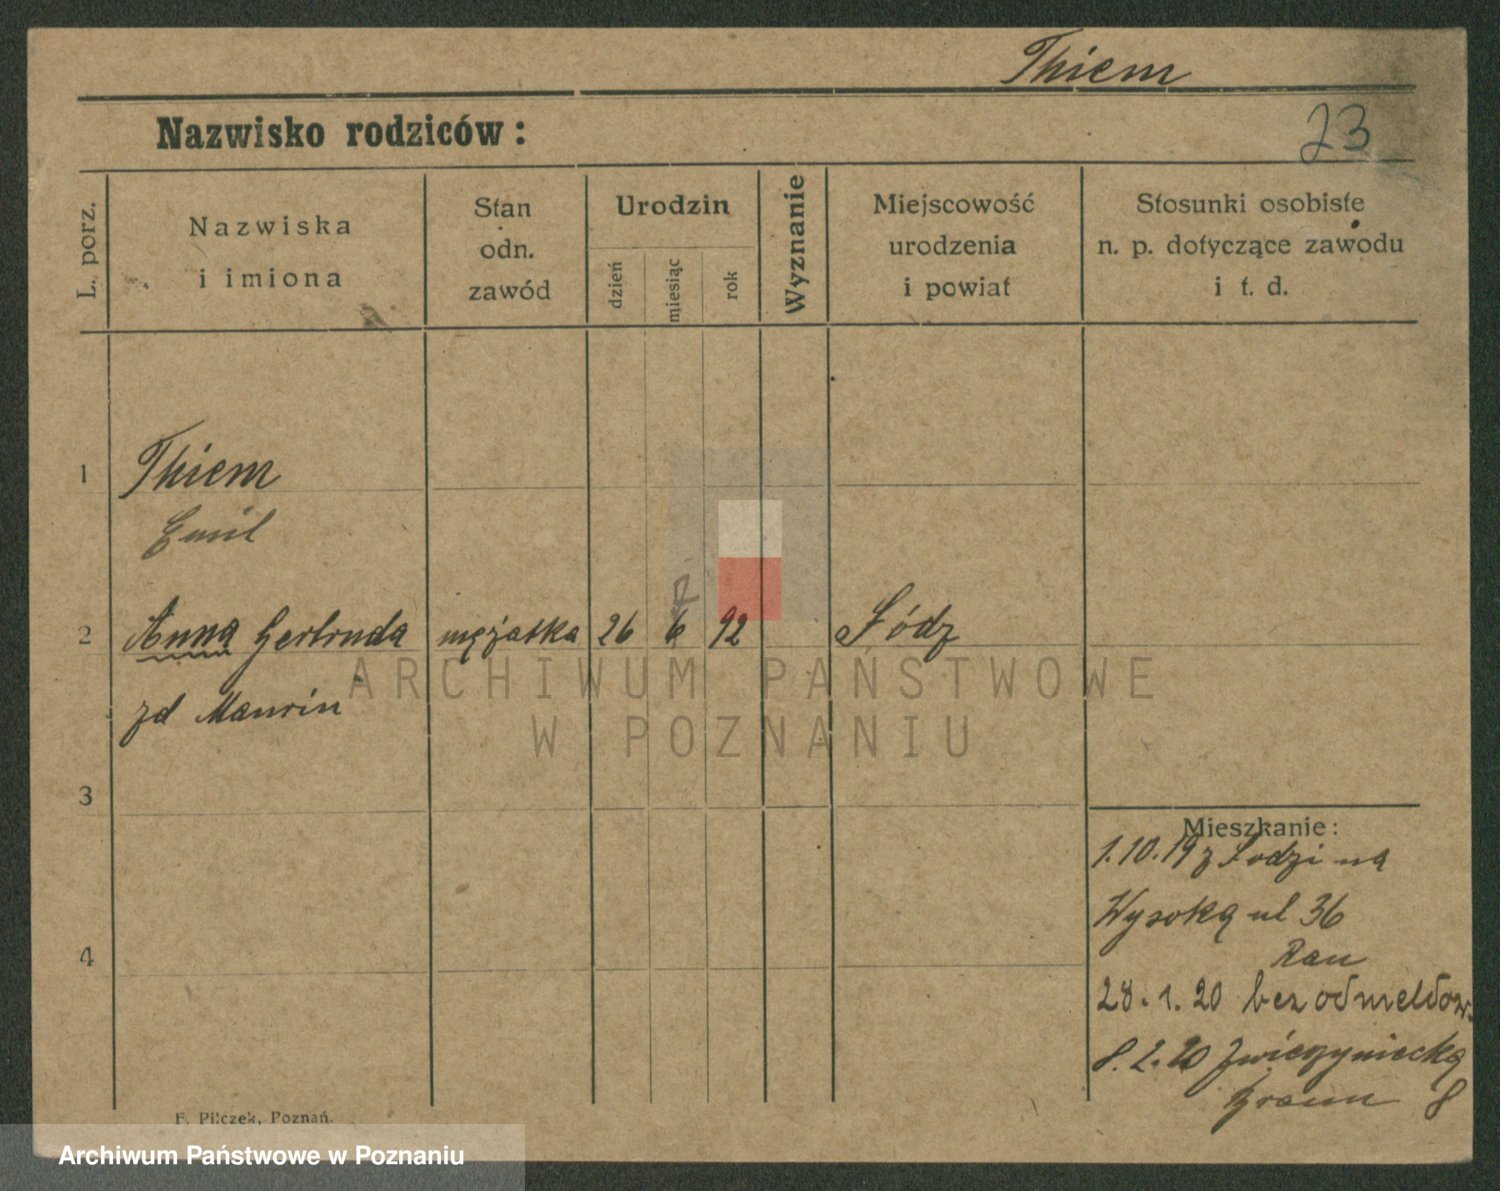 Thiem
Nazwisko rodziców:
23
L. porz.
Nazwiska
i imiona
Stan
odn.
zawód
Urodzin
dzień
miesiąc
rok
Wyznanie
Miejscowość
urodzenia
i powiat
Stosunki osobiste
n. p. dotyczące zawodu
i t. d.
1
Thiem
Emil
2
Anna Gertruda mężatka 26 6 92 Łódz
zd Maurin
ARCHIWUM PAŃSTWOWE
W POZNANIU
3
4
Mieszkanie:
1.10.19 z Łodzi na
Wysoką ul 36
Rau
28.1.20 bez odmeldow.
8.2.20 Zwierzyniecką
Braun 8
F. Pilczek, Poznań.
Archiwum Państwowe w Poznaniu